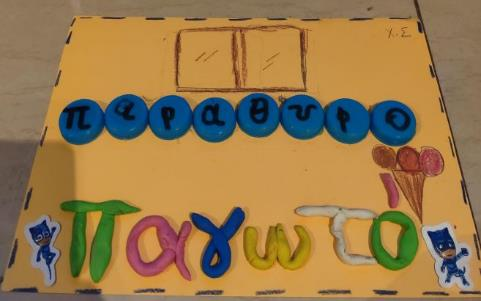 Χ.Σ
παραθυρο
παγωτό